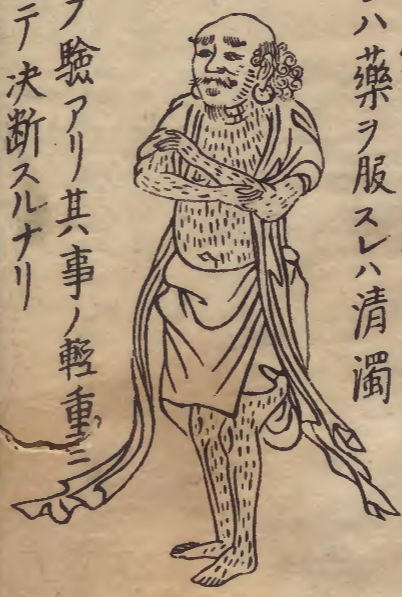 ハ藥ヲ服スレハ清濁
ノ驗アリ其事ノ輕重ニ
テ決断スルナリ